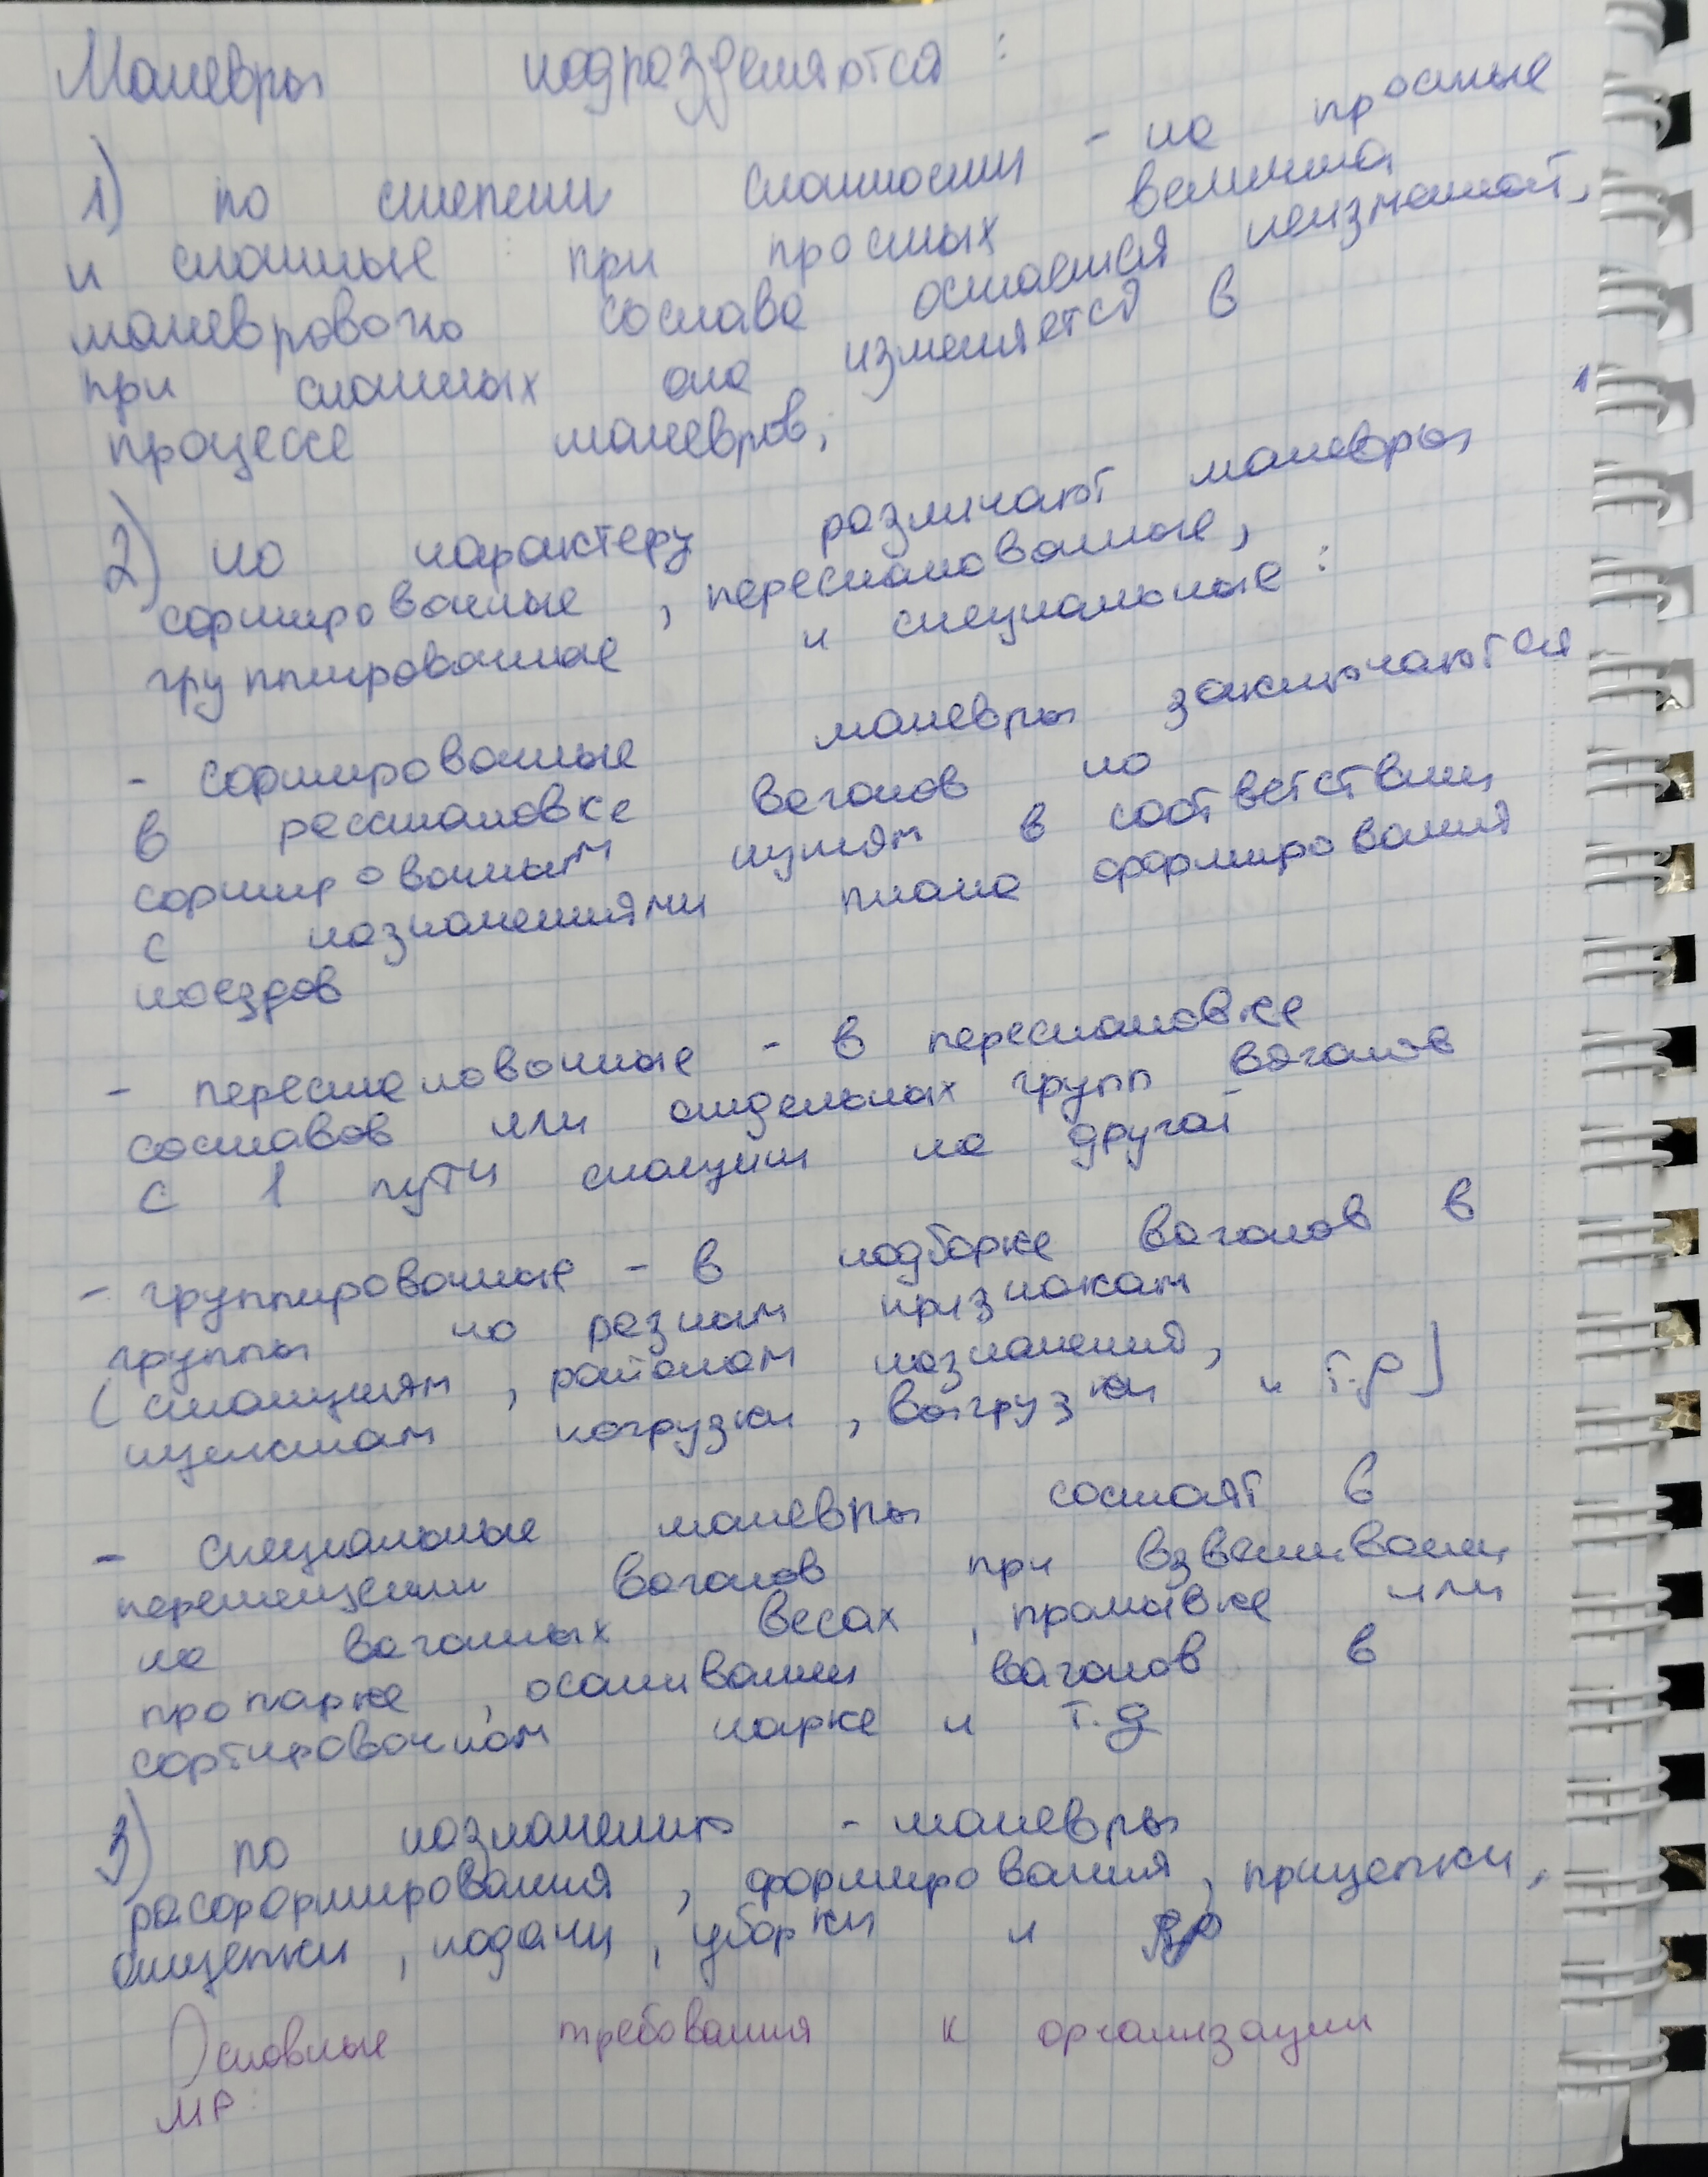 Маневры подразделяются:
1) по степени сложности - на простые
и сложные: при простых величина
маневрового состава остается неизменной,
при сложных она изменяется в
процессе маневров;
2) по характеру различают маневры
сортировочные, перестановочные,
группировочные и специальные:
- сортировочные маневры заключаются
в расстановке вагонов по
сортировочным путям в соответствии
с назначениями плана формирования
поездов
- перестановочные - в перестановке
составов или отдельных групп вагонов
с 1 пути станции на другой
- группировочные - в подборке вагонов в
группы по разным признакам
(станциям, районам назначения,
пунктам погрузки, выгрузки и т.д)
- специальные маневры состоят в
перемещении вагонов при взвешивании
на вагонных весах, промывке или
пропарке, осаживании вагонов в
сортировочном парке и т.д
3) по назначению - маневры
расформирования, формирования, прицепки,
отцепки, подачи, уборки и др
Основные требования к организации
МР: